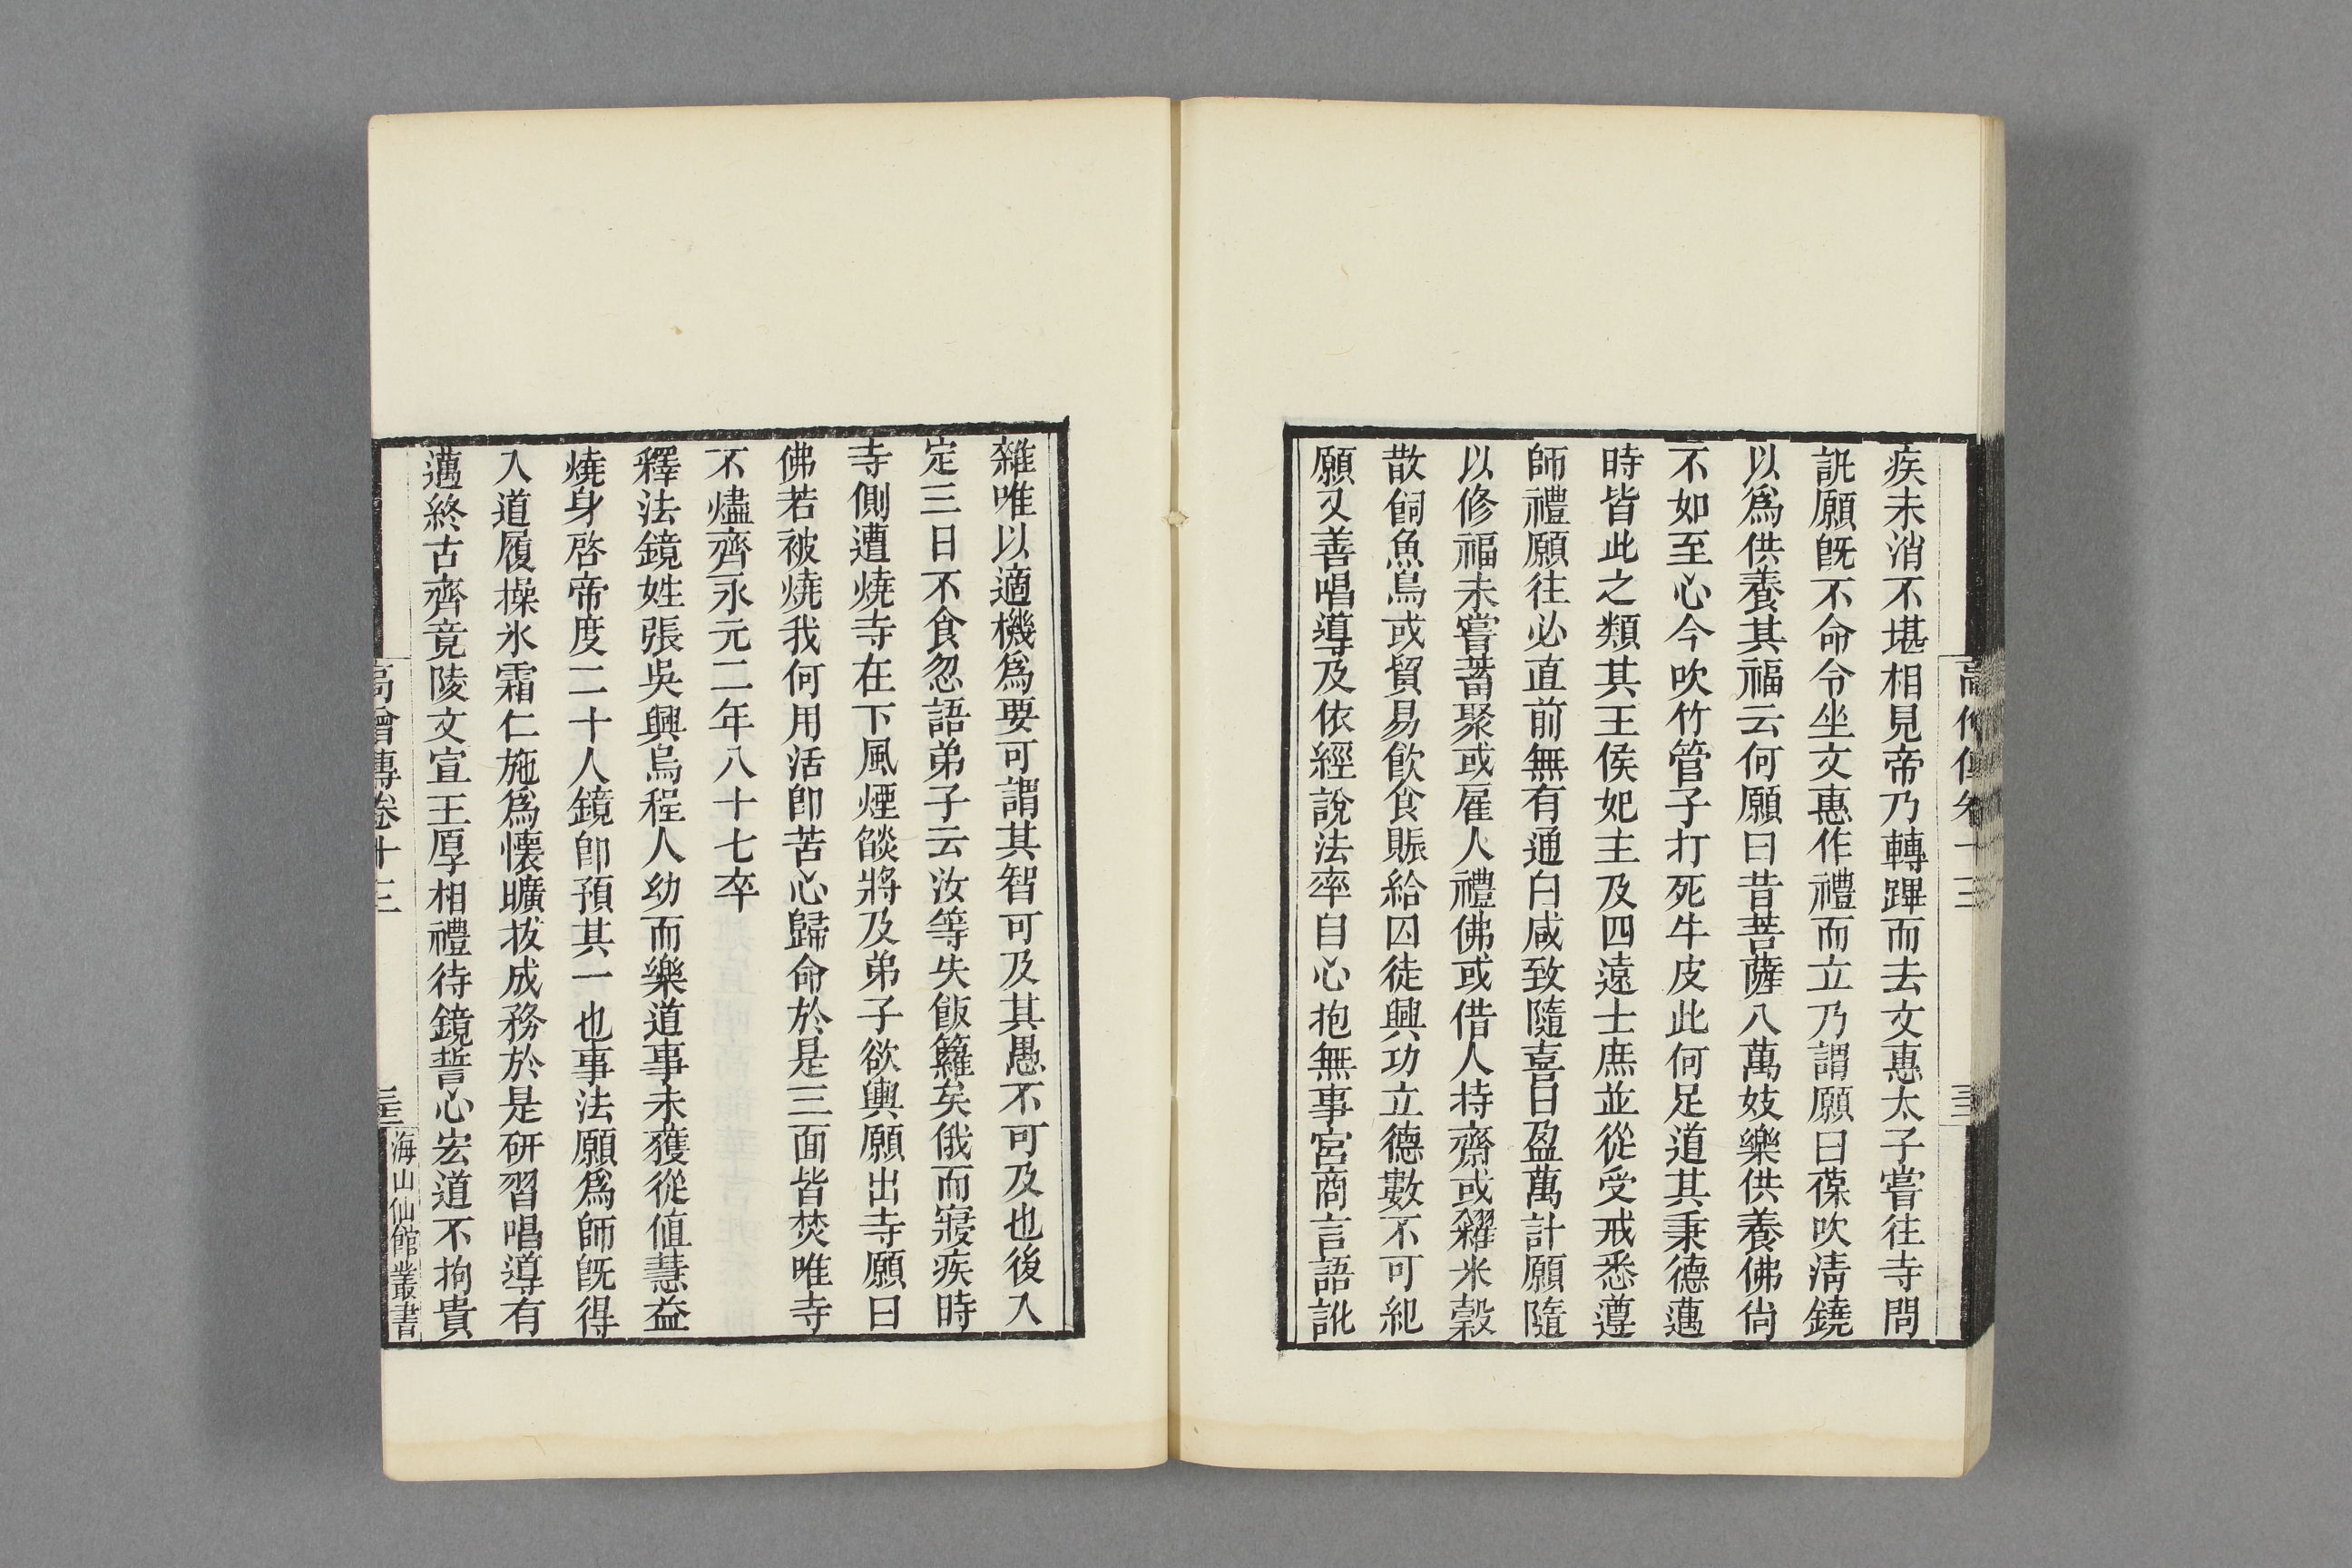 疾未消不堪相見帝乃轉蹕而去文惠太子嘗往寺問
訊願旣不命令坐文惠作禮而立乃謂願曰葆吹清鐃
以爲供養其福云何願曰昔菩薩八萬妓樂供養佛尙
不如至心今吹竹管子打死牛皮此何足道其秉德邁
時皆此之類其王侯妃主及四遠士庶並從受戒悉遵
師禮願往必直前無有通白咸致隨喜日盈萬計願隨
以修福未嘗蓄聚或雇人禮佛或借人持齋或糴米穀
散飼魚鳥或貿易飮食賑給囚徒興功立德數不可紀
願又善唱導及依經說法率自心抱無事宮商言語訛
雜唯以適機爲要可謂其智可及其愚不可及也後入
定三日不食忽語弟子云汝等失飯籮矣俄而寢疾時
寺側遭燒寺在下風煙燄將及弟子欲輿願出寺願曰
佛若被燒我何用活卽苦心歸命於是三面皆焚唯寺
不燼齊永元二年八十七卒
釋法鏡姓張吳興烏程人幼而樂道事未獲從値慧益
燒身啓帝度二十人鏡卽預其一也事法願爲師旣得
入道履操氷霜仁施爲懷曠拔成務於是硏習唱導有
邁終古齊竟陵文宣王厚相禮待鏡誓心宏道不拘貴
高僧傳卷十三
海山仙館叢書